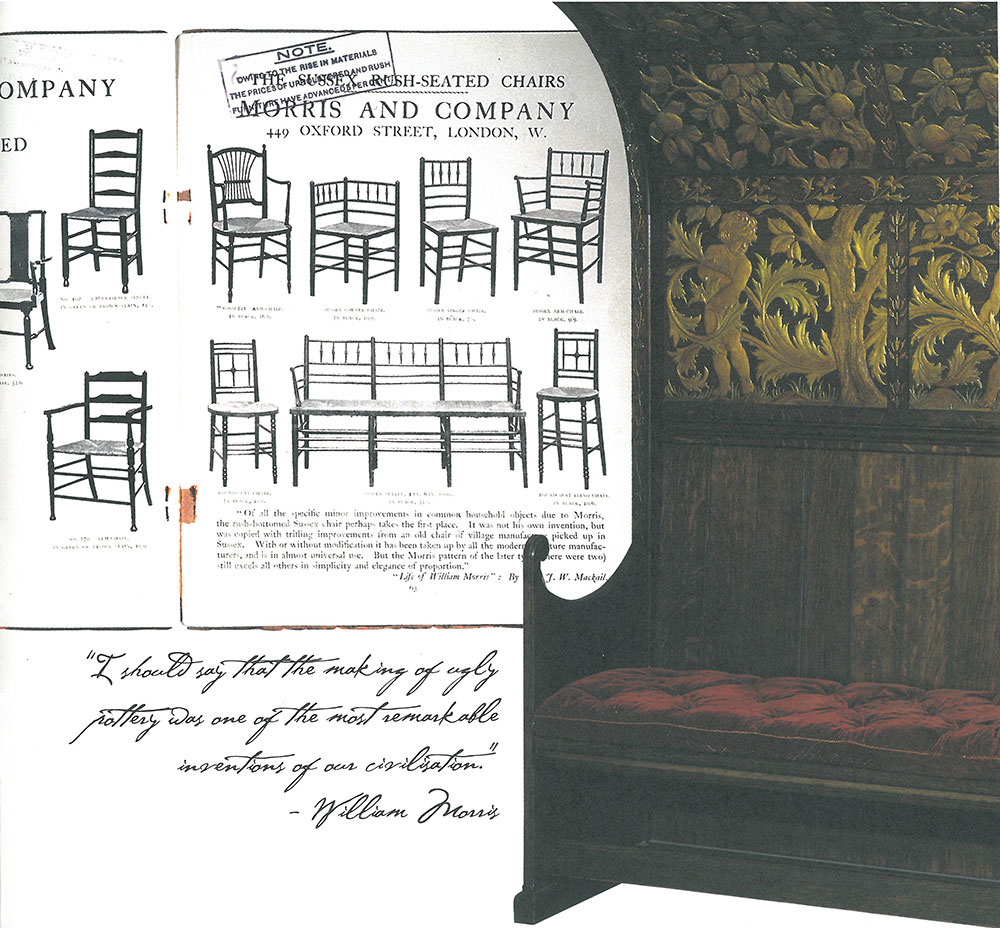 OMPANY
ED
NOTE.
OWING TO THE RISE IN MATERIALS
THE PRICES OF UPHOLSTERED AND RUSH
FURNITURE HAVE ADVANCED PER CENT
THE SUSSEX RUSH-SEATED CHAIRS
MORRIS AND COMPANY
449 OXFORD STREET, LONDON, W.
IN BLACK,
SUSSEX CORNER CHAIR.
IN BLACK,
SUSSEX SINGLE CHAIR.
IN BLACK,
SUSSEX ARM-CHAIR.
IN BLACK,
IN GREEN OR BROWN STAIN,
IN BLACK,
IN BLACK,
IN BLACK,
IN GREEN OR BROWN STAIN,
"Of all the specific minor improvements in common household objects due to Morris,
the rush-bottomed Sussex chair perhaps takes the first place. It was not his own invention, but
was copied with trifling improvements from an old chair of village manufac picked up in
Sussex. With or without modification it has been taken up by all the modern ture manufac-
turers, and is in almost universal use. But the Morris pattern of the later ty here were two)
still excels all others in simplicity and elegance of proportion."
"Life of William Morris": By J. W. Mackail.
63
"I should say that the making of ugly
pottery was one of the most remarkable
inventions of our civilisation."
- William Morris